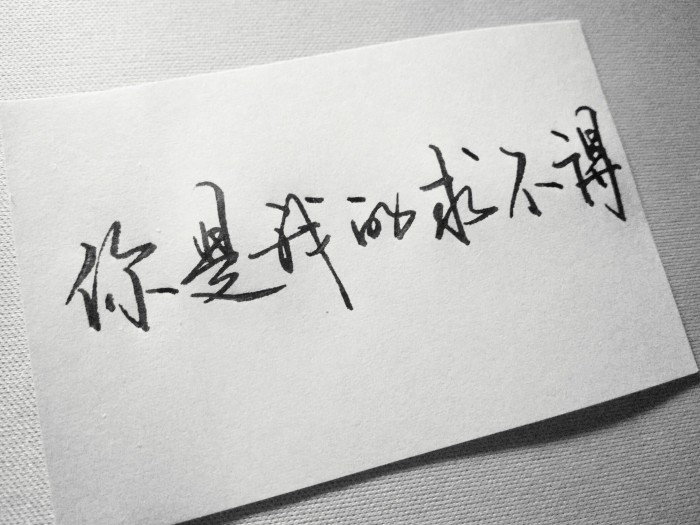 你是我的求不得